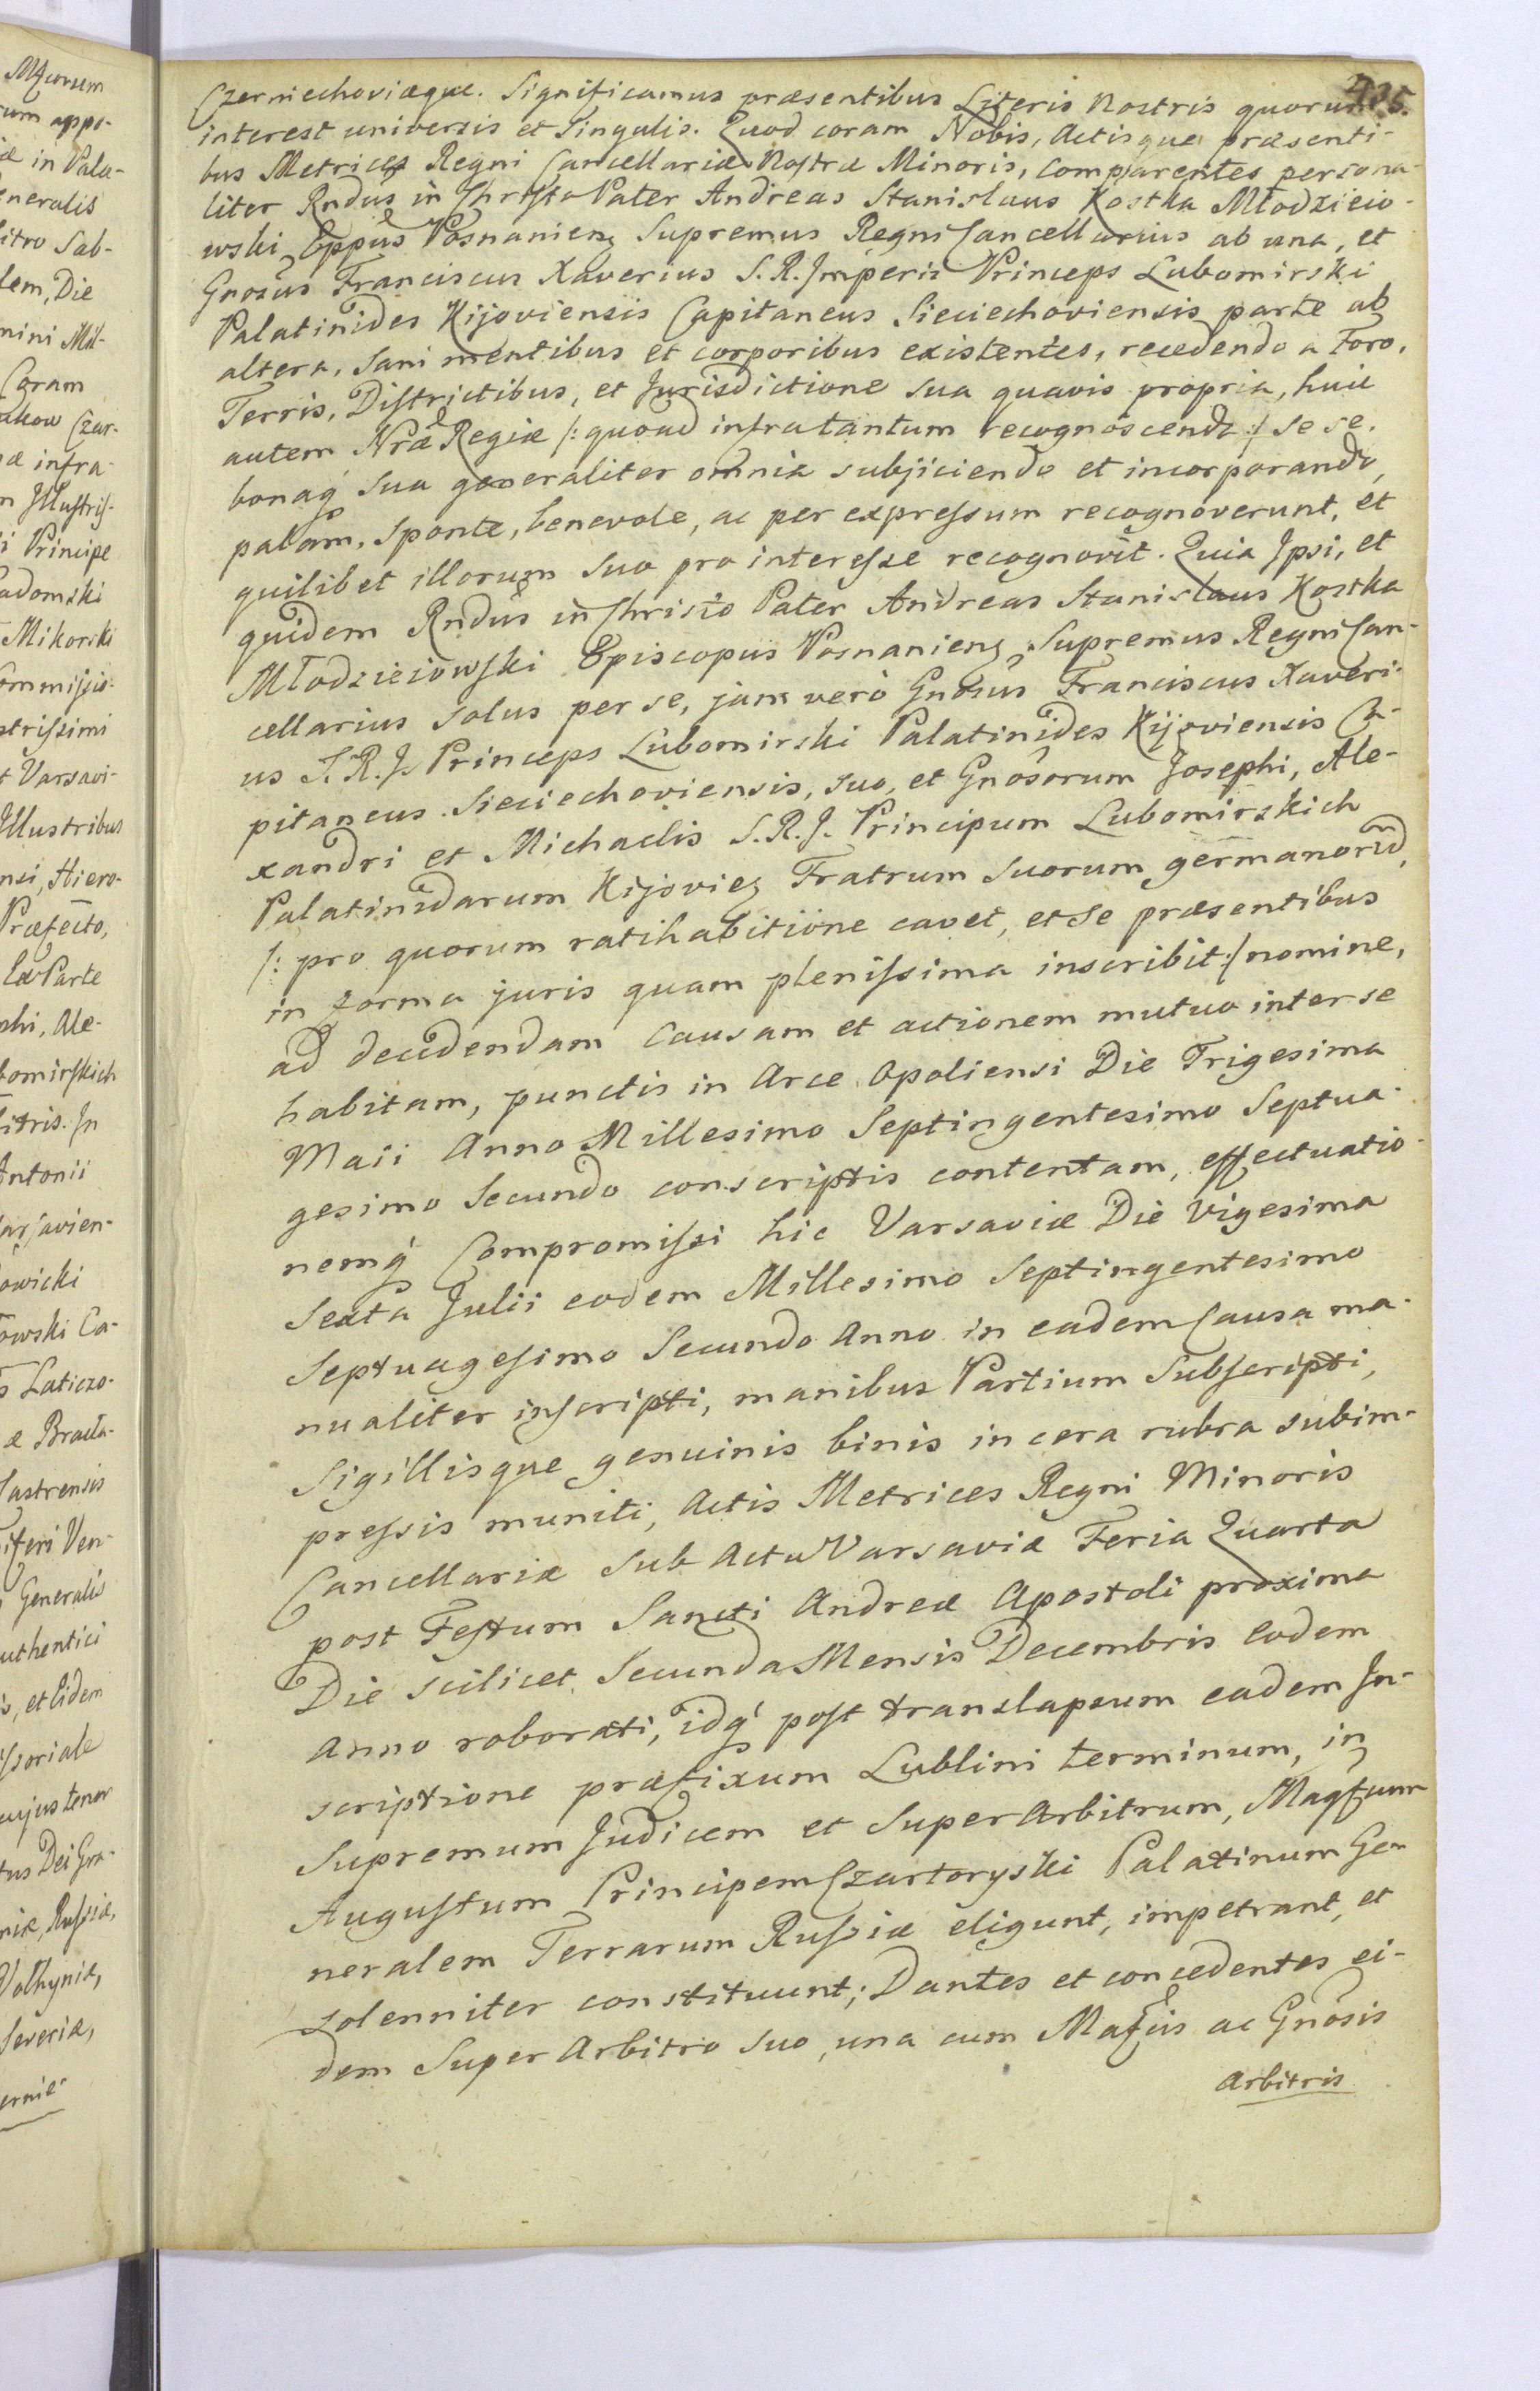 435.
Czerniechoviæque. Significamus præsentibus Literis Nostris quorum
interest universis et Singulis. Quod coram Nobis, Actisque præsenti-
bus Metrices Regni Cancellariæ Nostræ Minoris, comparentes persona-
liter Rndus in Christo Pater Andreas Stanislaus Kostka Młodzieio-
wski Eppus Posnaniens Supremus Regni Cancellarius ab una, et
Gnosus Franciscus Xaverius S. R. Imperii Princeps Lubomirski
Palatinides Kijoviensis Capitaneus Sieciechoviensis parte ab
altera, Sani mentibus et corporibus existentes, recedendo a Foro,
Terris, Districtibus, et Jurisdictione sua quavis propria, huic
autem Nræ Regiæ /: quoad infratantum recognoscenda :/ se se.
bonaq sua generaliter omnia subjiciendo et incorporando,
palam, sponte, benevole, ac per expressum recognoverunt, et
quilibet illorum suo pro interesse recognovit. Quia Ipsi, et
quidem Rndus in Christo Pater Andreas Stanislaus Kostka
Młodzieiowski Episcopus Posnaniens Supremus Regni Can-
cellarius solus per se, jam verò Gnosus Franciscus Xaveri-
us S. R. J. Princeps Lubomirski Palatinides Kijoviensis Ca-
pitaneus Sieciechoviensis, suo, et Gnosorum Josephi, Ale-
xandri et Michaelis S. R. J. Principum Lubomirskich
Palatinidarum Kijovien Fratrum Suorum germanorum,
/: pro quorum ratihabitiione cavet, et se præsentibus
in forma juris quam plenissima inscribit :/ nomine,
ad decidendam Causam et actionem mutuo inter se
habitam, punctis in Arce Opoliensi Die Trigesima
Maii Anno Millesimo Septingentesimo Septua-
gesimo Secundo conscriptis contentam, effectuatio-
nemq Compromissi hic Varsaviæ Die Vigesima
Sexta Julii eodem Millesimo Septingentesimo
Septuagesimo Secundo Anno in eadem Causa ma-
nualiter inscripti, manibus Partium Subscripti,
Sigillisque genuinis binis in cera rubra subim-
pressis muniti, Actis Metrices Regni Minoris
Cancellariæ Sub Actu Varsaviæ Feria Quarta
post Festum Sancti Andreæ Apostoli proxima
Die scilicet Secunda Mensis Decembris Eodem
Anno roborati, idq post translapsum eadem In-
scriptione præfixum Lublini terminum, in
Supremum Judicem et Super Arbitrum, Magfcum
Augustum Principem Czartoryski Palatinum Ge-
neralem Terrarum Russiæ eligunt, impetrant, et
solenniter constituunt; Dantes et concedentes ei-
dem Super Arbitro suo, una cum Mafcis ac Gnosis
Arbitris